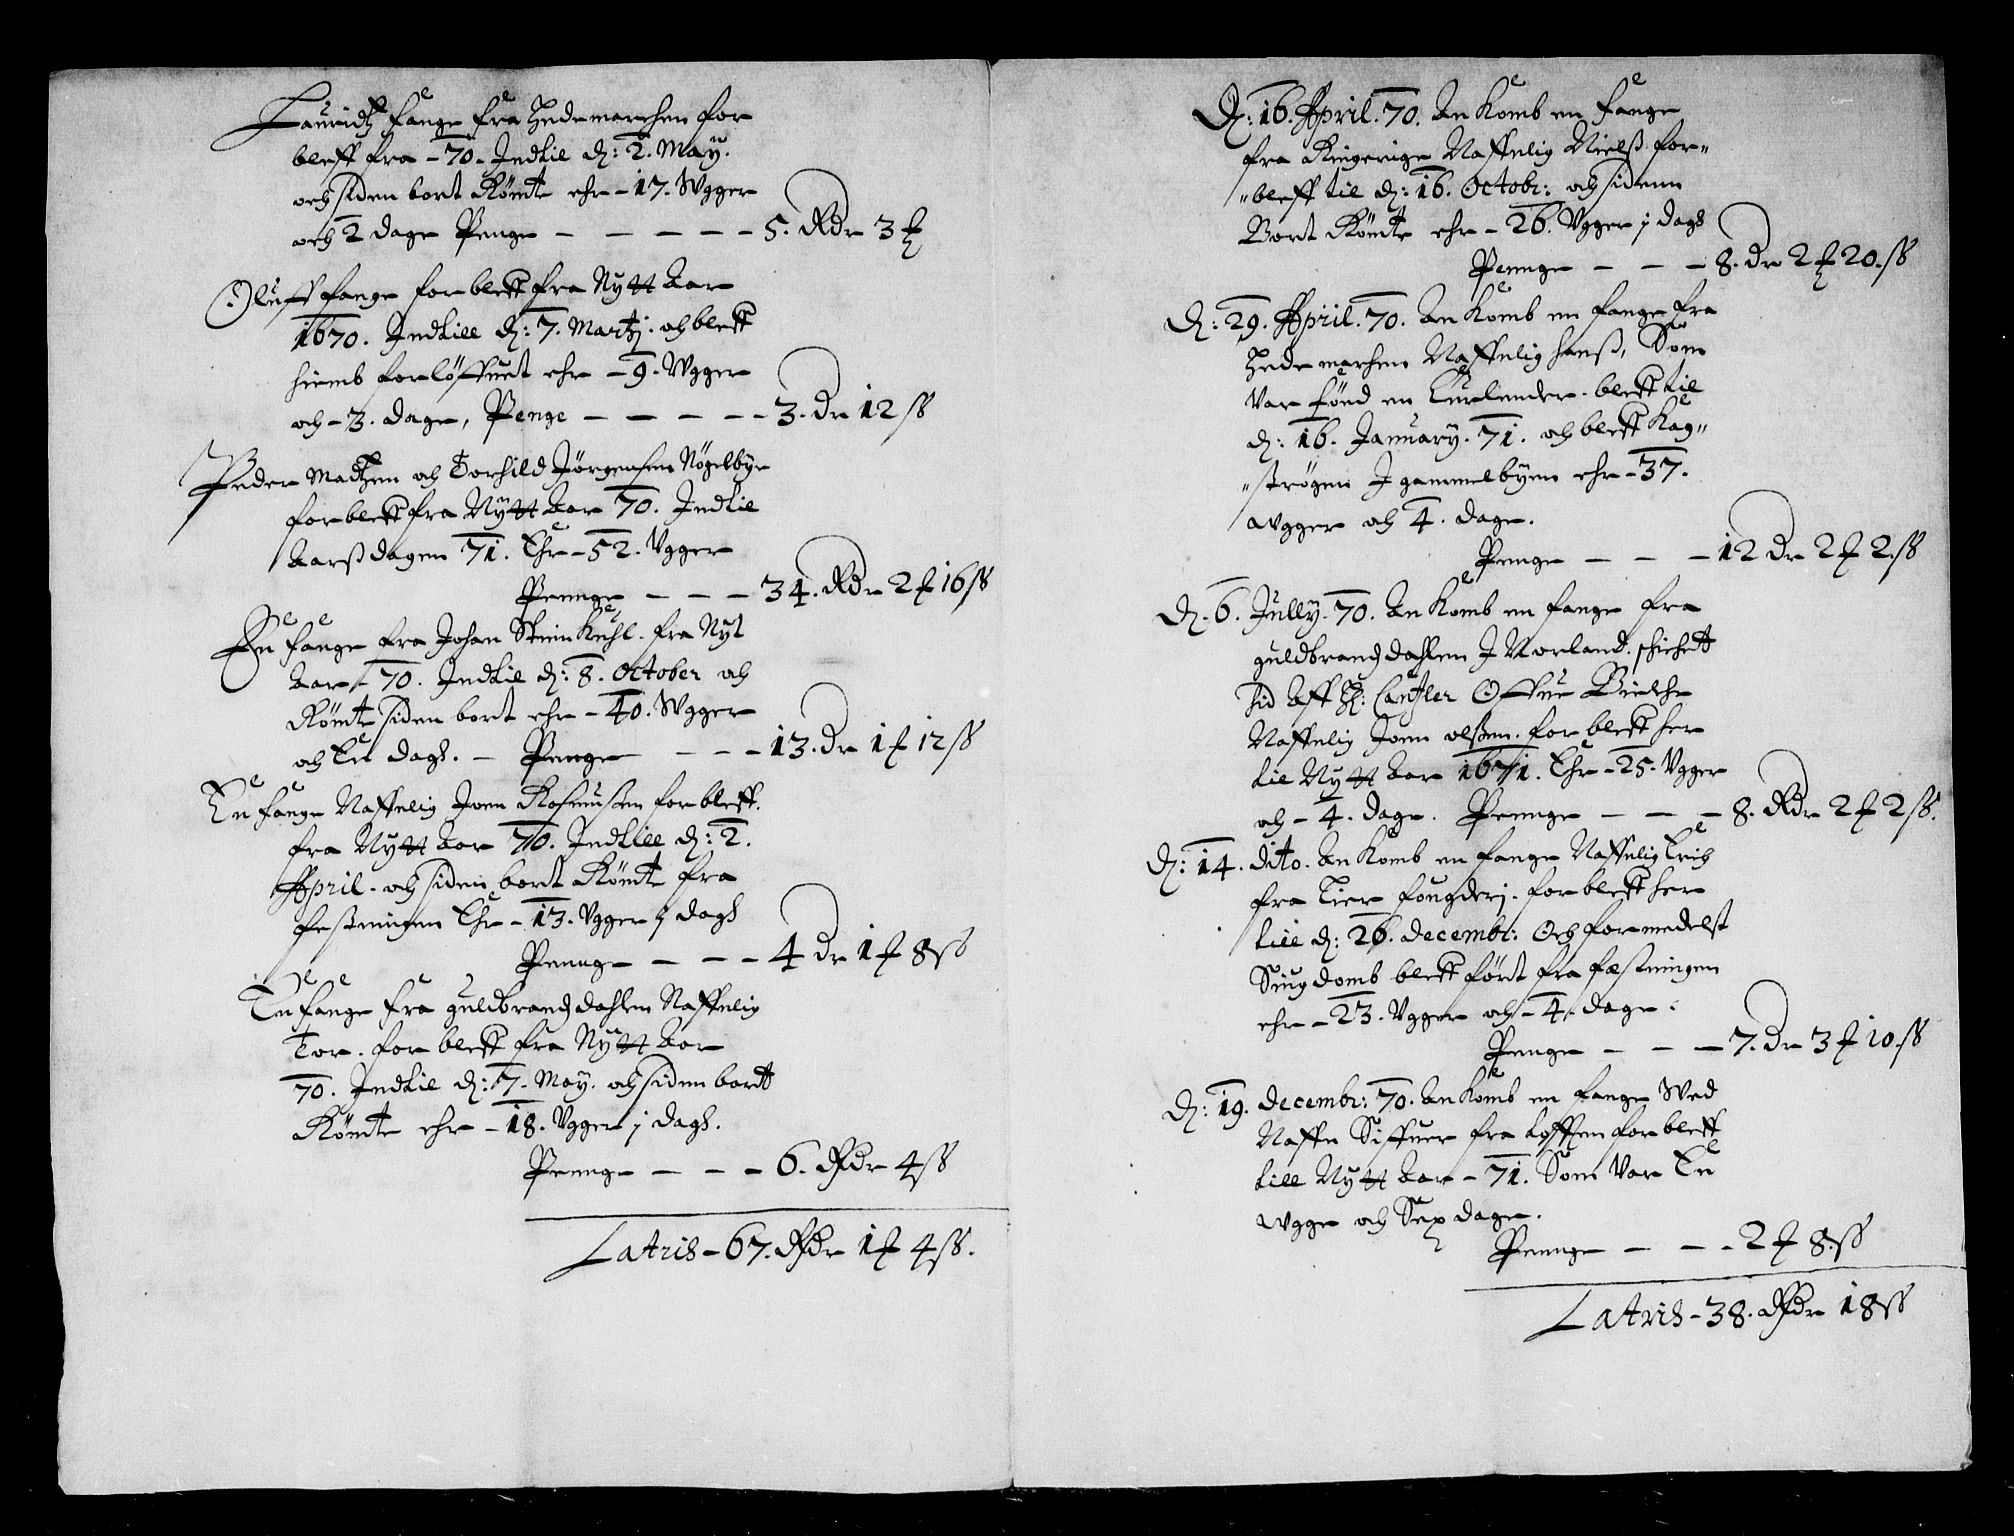 Lauridtz fange fra Hedemarchen for
bleff fra - 70. Indtil d: 2. May.
och siden bort Rømte ehr - 17. Wgger
och 2 dage Penge - - - - - 5. Rdr 3 ₶
Oluff fange forbleff fra Nytt Aar
1670. Indtill d: 7. Martj. och bleff
hiemb forløffuet ehr - 9. Wgger
och - 3. dage, Penge - - - - - 3. dr 12 ß
Peder Madtzen och Torkild Jørgensen Nøgelbye
forbleff fra Nytt Aar 70. Indtil
Aarsdagen 71. Ehr - 52. Vgger
Pennge - - - 34. Rdr 2 ₶ 16 ß
En fange fra Johan Stein Kuhl. fra Nyt
Aar - 70. Indtil d: 8. October och
Rømte siden bort ehr - 40. Wgger
och En dagh. - Penge - - - 13. dr 1 ₶ 12 ß
En fange Naffnlig Joen Rasmussen forbleff.
fra Nytt Aar 70. Indtill d: 2.
April. och siden bort Rømte fra
festningen Ehr - 13. Vgger j dagh
Pennge - - - 4 dr 1 ₶ 8 ß
En fange fra guldbrandzdahlen Naffnlig
Tor. forbleff fra Nytt Aar
70. Indtil d: 7. May. och siden bortt
Rømte ehr - 18. Vgger j dagh.
Pennge - - - 6. Rdr 4 ß
Latris - 67. Rdr 1 ₶ 4 ß.
D: 16. April. 70. An Komb en fange
fra Ringerige Naffnlig Nielß for-
-bleff til d: 16. Octobr: och sidenn
Bort Rømte ehr - 26. Vgger j dagh
Pennge - - - 8. dr 2 ₶ 20. ß
D: 29. April. 70. An Komb en fange fra
Hedemarchen Naffnlig Hanß, Som
Var fød en Curlender. bleff til
d: 16. January. 71. och bleff Kag-
-strøgen J gammelbyen ehr - 37.
Wgger och 4. dage.
Penge - - - 12 dr 2 ₶ 2. ß
D. 6. Jully. 70. An Komb en fange fra
guldbrandzdahlen J Norland. schichett
hid Aff H: Cantzler Offue Bielche
Naffnlig Joen olßen. forbleff her
til Nytt Aar 1671. Ehr - 25. Vgger
och - 4. dage. Pennge - - - 8. Rdr 2 ₶ 2 ß.
D: 14. dito. An Komb en fange Naffnlig Erich
fra Lier fougderj. forbleff her
till d: 26. decembr: Och formedelst
Siugdomb bleff ført fra fæstningen
ehr - 23. Vgger och - 4. dage.
Penge - - - 7. dr 3 ₶ 10. ß
D: 19. decembr: 70. An Komb en fange Wed
Naffn Siffuer fra forbleff
till Nytt Aar - 71. Som Var En
Wgge och Sex dage.
Pennge - - - 2 ₶ 8. ß
Latris - 38. Rdr 18 ß